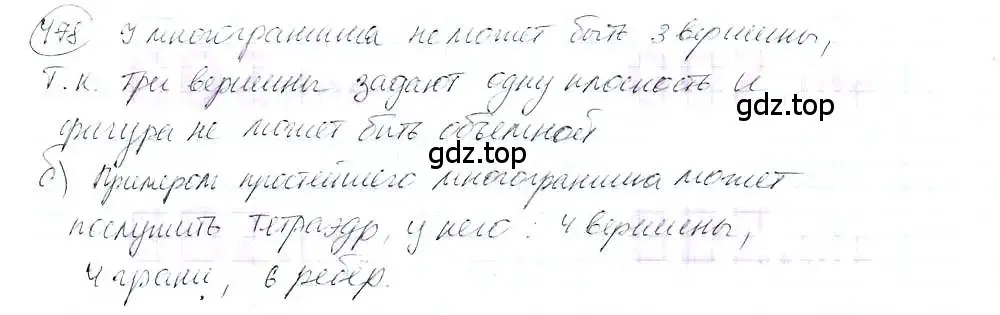 478 У многогранника не может быть 3 вершины,
gdz.top
т.к. три вершины задают одну плоскость и
фигура не может быть объемной
gdz.top
б) Примером простейшего многогранника может
послужить тетраэдр, у него: 4 вершины,
gdz.top
4 грани, 6 рёбер.